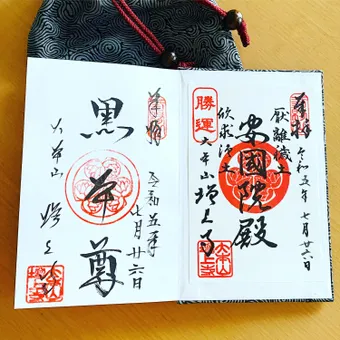 奉拝
厭離穢土
令和五年七月廿六日
安國院殿
勝運
欣求浄土
大本山増上寺
奉拝
令和五年
七月廿六日
黒本尊
大本山
増上寺